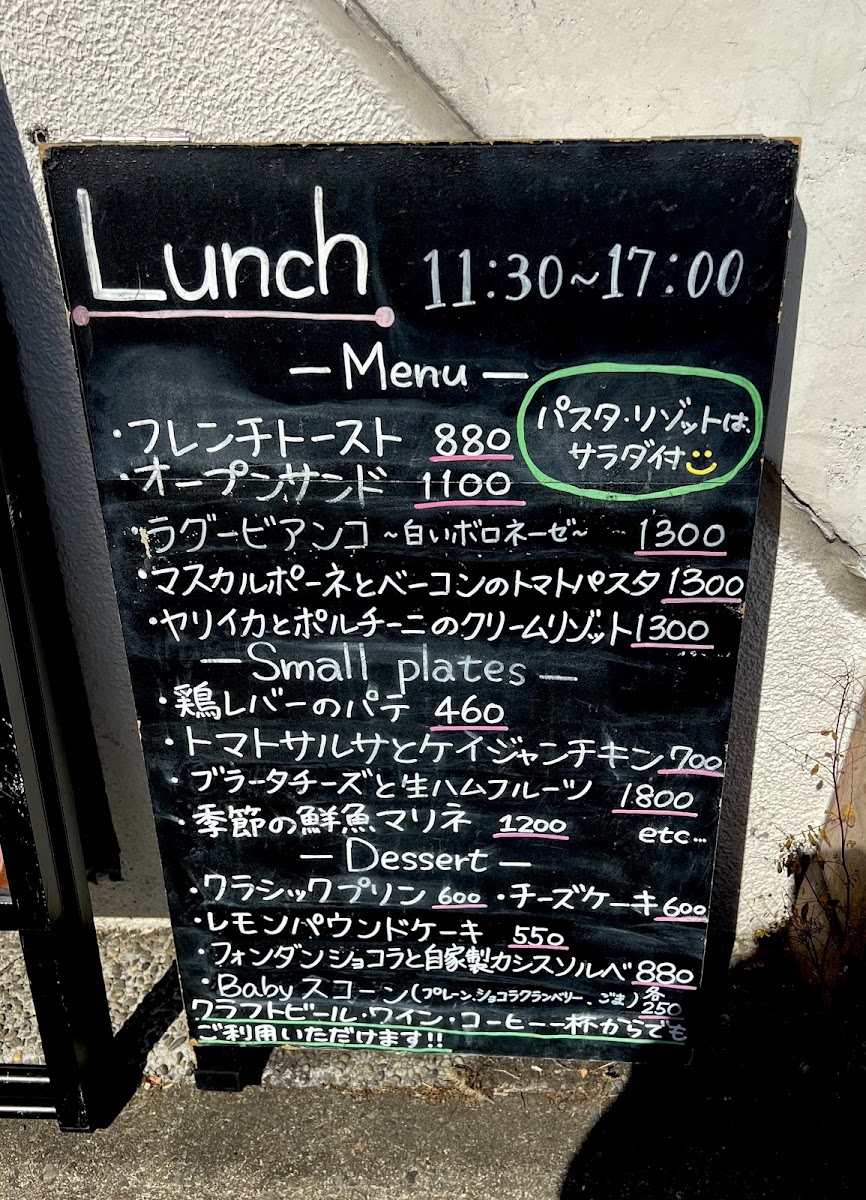 Lunch 11:30~17:00
— Menu —
パスタ・リゾットは、
サラダ付
・フレンチトースト 880
・オープンサンド 1100
・ラグービアンコ ~白いボロネーゼ~ 1300
・マスカルポーネとベーコンのトマトパスタ 1300
・ヤリイカとポルチーニのクリームリゾット 1300
— Small plates —
・鶏レバーのパテ 460
・トマトサルサとケイジャンチキン 700
・ブラータチーズと生ハムフルーツ 1800
・季節の鮮魚マリネ 1200 etc...
— Dessert —
・クラシックプリン 600 ・チーズケーキ 600
・レモンパウンドケーキ 550
・フォンダンショコラと自家製カシスソルベ 880
・Babyスコーン(プレーン、ショコラクランベリー、ごま) 各250
クラフトビール・ワイン・コーヒー一杯からでも
ご利用いただけます!!